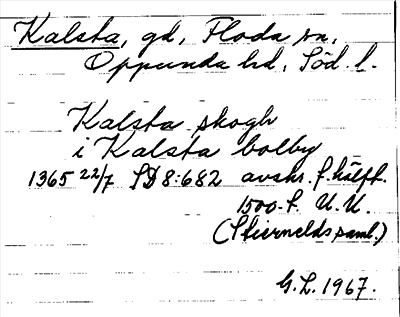 Kalsta, gd, Floda sn,
Oppunda hd, Söd. l.
Kalsta skogh
i Kalsta bolby
1365 22/7 SD 8:682 avskr. f. hälft.
1500-t. U.U.
(Stiernelds saml.)
G.L. 1967.